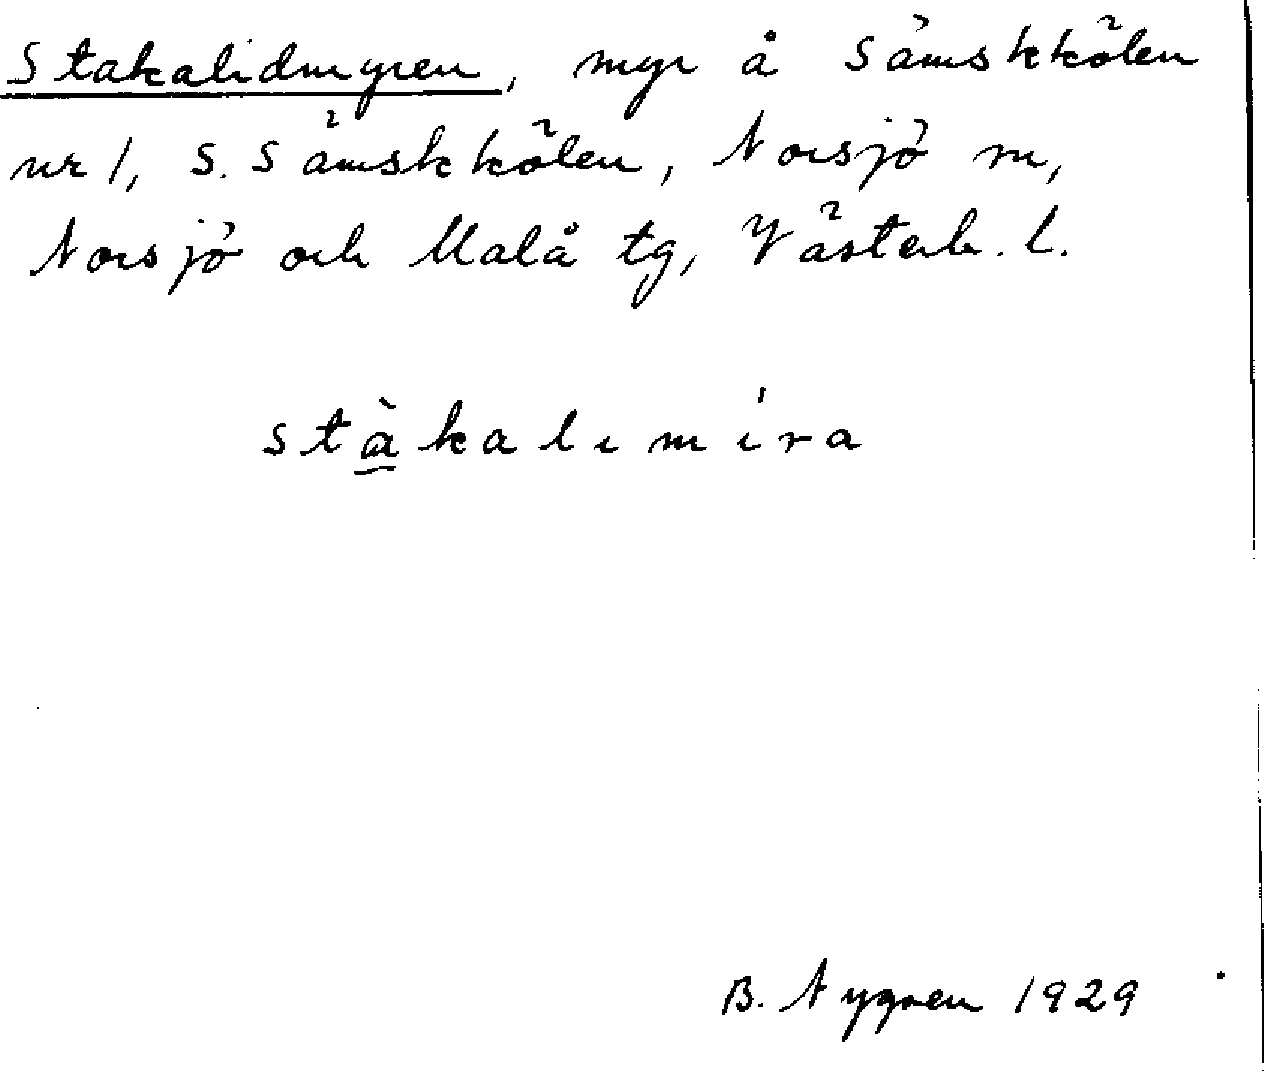 Stakalidmyren, myr å Sämskkölen
nr 1, S. Sämskkölen, Norsjö sn,
Norsjö och Malå tg, Västerb. l.
stàkalimíra
B. Nygren 1929